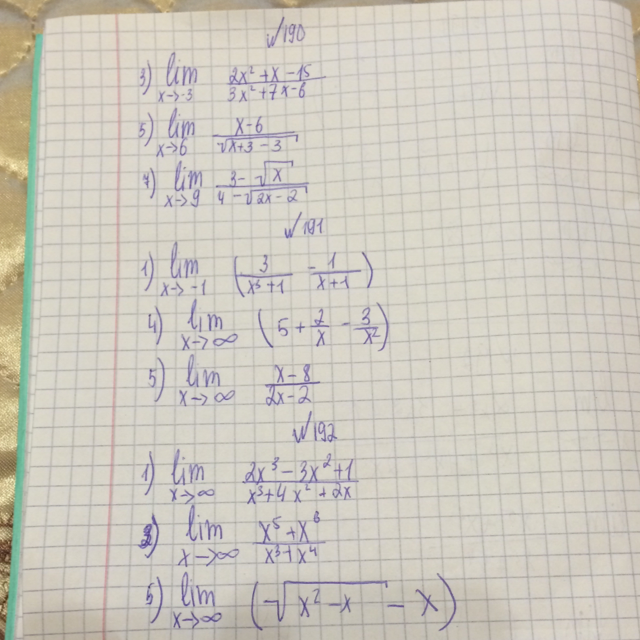 №190
3) lim x→-3 (2x²+x-15)/(3x²+7x-6)
5) lim x→6 (x-6)/(√(x+3)-3)
7) lim x→9 (3-√x)/(4-√(2x-2))
№191
1) lim x→-1 (3/(x³+1) - 1/(x+1))
4) lim x→∞ (5+2/x-3/x²)
5) lim x→∞ (x-8)/(2x-2)
№192
1) lim x→∞ (2x³-3x²+1)/(x³+4x²+2x)
2) lim x→∞ (x⁵+x⁶)/(x³+x⁴)
5) lim x→∞ (√(x²-x) - x)